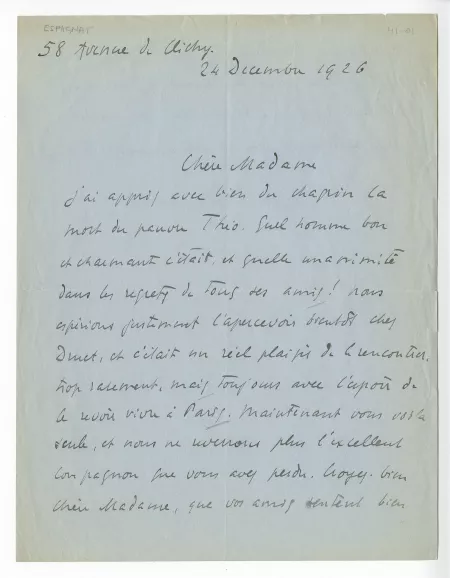 ESPAGNAT
58 Avenue de Clichy.
24 Decembre 1926
Chère Madame
j'ai appris avec bien du chagrin la
mort du pauvre Théo. Quel homme bon
et charmant c'était, et quelle unanimité
dans les regrets de tous ses amis! nous
espérions justement l'apercevoir bientôt chez
Druet, et c'était un réel plaisir de le rencontrer,
trop rarement, mais toujours avec l'espoir de
le revoir vivre à Paris. Maintenant vous voilà
seule, et nous ne reverrons plus l'excellent
compagnon que vous avez perdu. Croyez-bien
chère Madame, que vos amis sentent bien